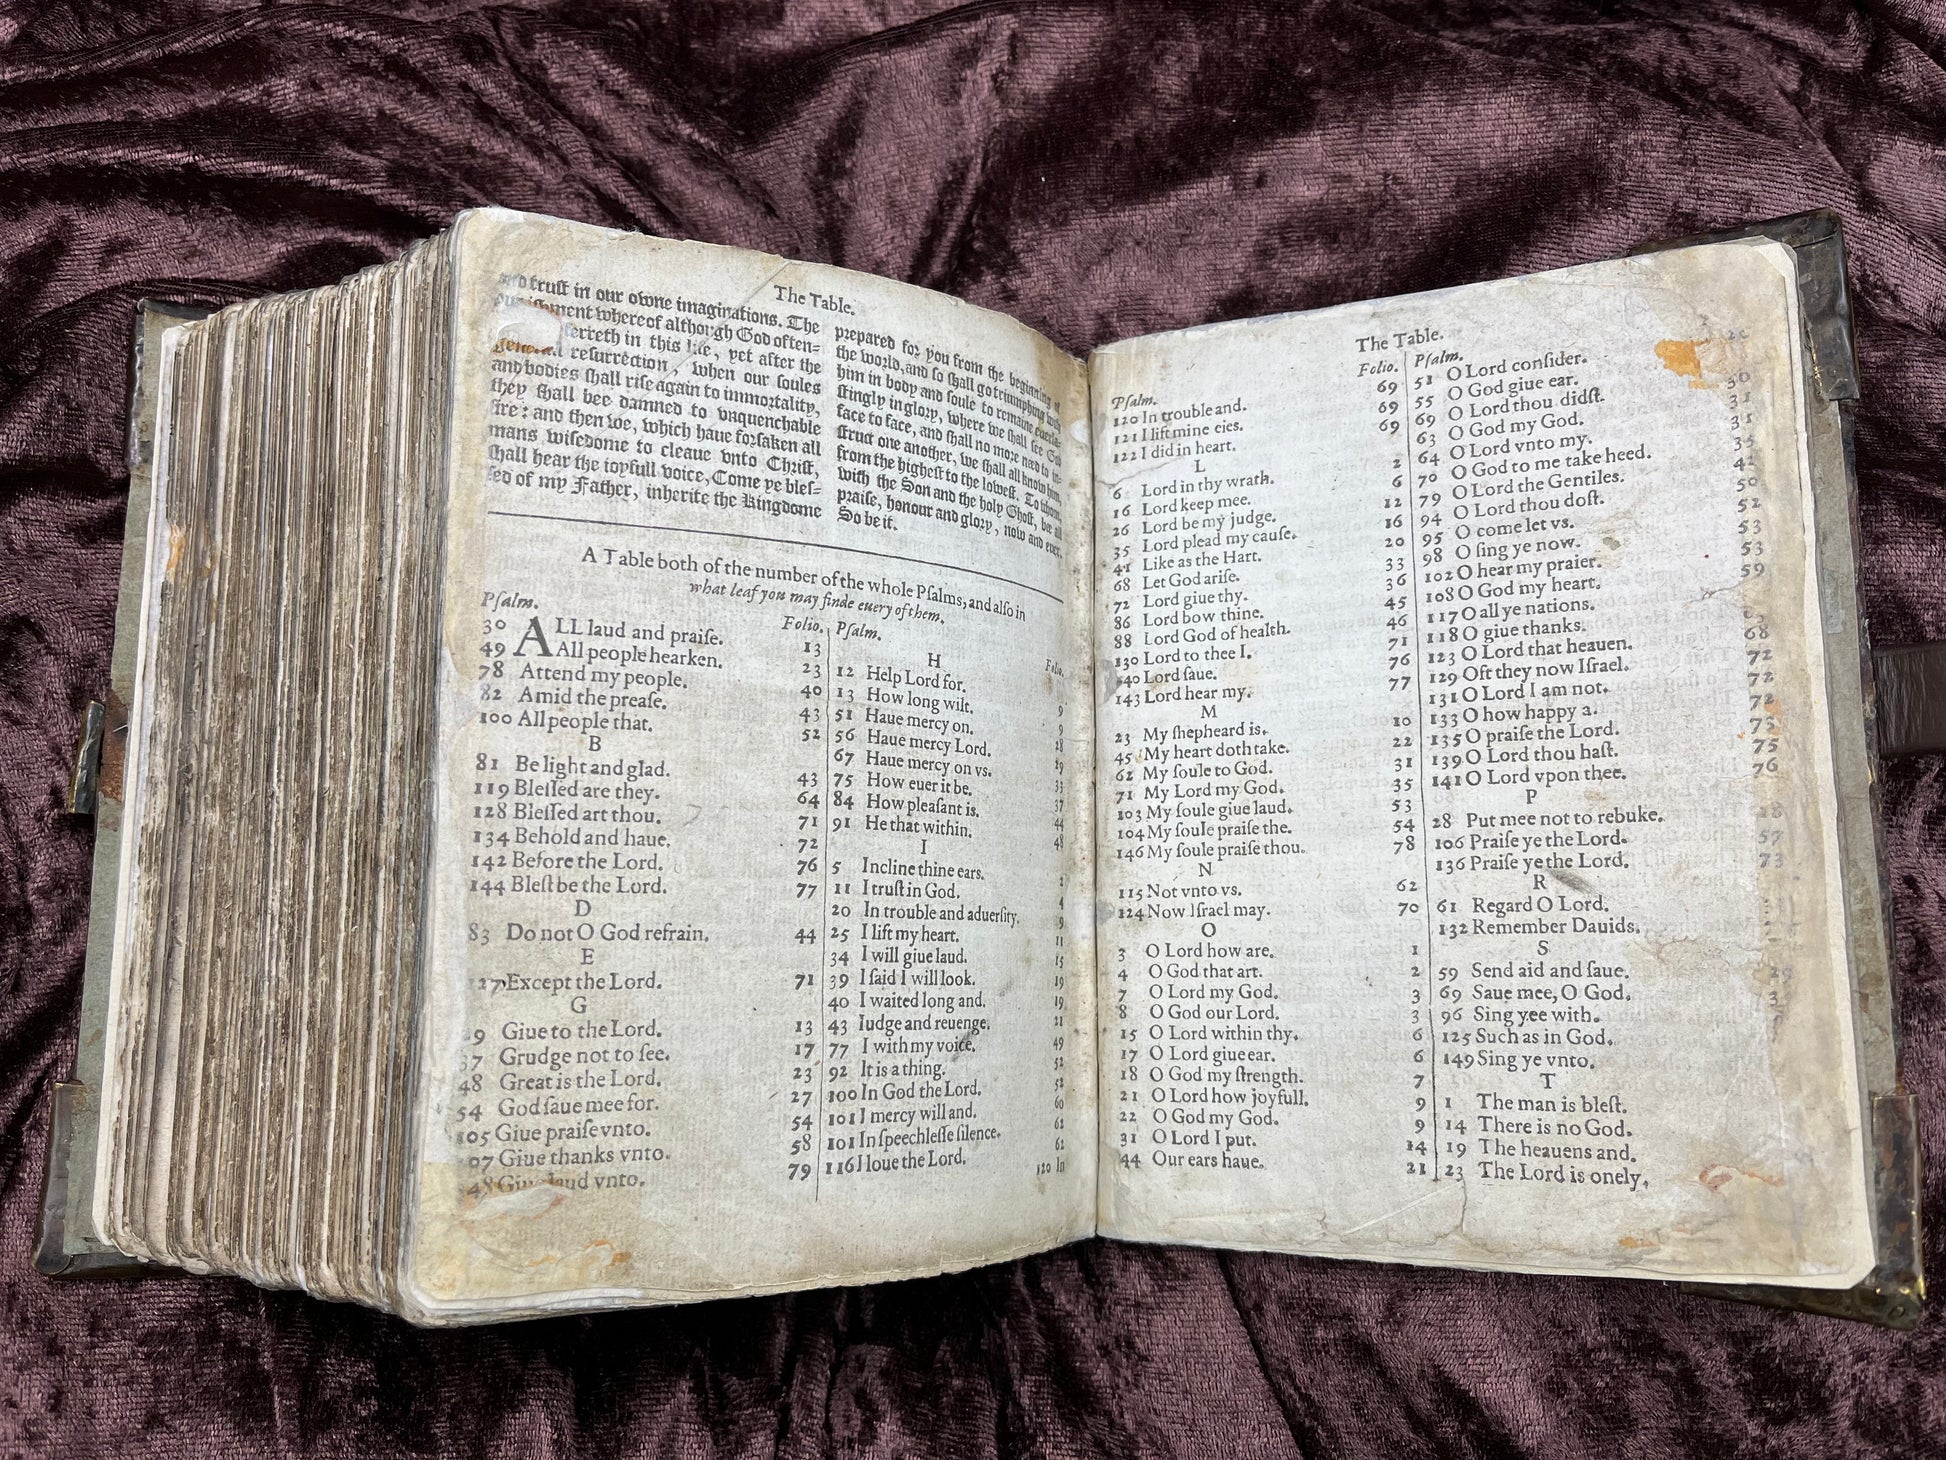 The Table.
and trust in our owne imaginations. The
punishment whereof although God often-
ferreth in this life, yet after the
generall resurrection, when our soules
and bodies shall rise again to immortality,
they shall bee damned to vnquenchable
fire: and then we, which haue forsaken all
mans wisedome to cleaue vnto Christ,
shall hear the ioyfull voice, Come ye bles-
sed of my Father, inherite the kingdome
prepared for you from the beginning of
the world, and so shall go triumphing with
him in body and soule to remaine euerla-
stingly in glory, where we shall see God
face to face, and shall no more need to in-
struct one another, we shall all know him,
from the highest to the lowest. To whom,
with the Son and the holy Ghost, be all
praise, honour and glory, now and euer.
So be it.
A Table both of the number of the whole Pſalms, and alſo in
what leaf you may finde euery of them.
Pſalm. Folio.
30 ALL laud and praiſe. 13
49 All people hearken. 23
78 Attend my people. 40
82 Amid the preaſe. 43
100 All people that. 52
B
81 Be light and glad. 43
119 Bleſſed are they. 64
128 Bleſſed art thou. 71
134 Behold and haue. 72
142 Before the Lord. 76
144 Bleſt be the Lord. 77
D
83 Do not O God refrain. 44
E
127 Except the Lord. 71
G
29 Giue to the Lord. 13
37 Grudge not to ſee. 17
48 Great is the Lord. 23
54 God ſaue mee for. 27
105 Giue praiſe vnto. 54
107 Giue thanks vnto. 58
148 Giue laud vnto. 79
Pſalm. Folio.
H
12 Help Lord for.
13 How long wilt. 9
51 Haue mercy on. 9
56 Haue mercy Lord. 28
67 Haue mercy on vs. 29
75 How euer it be. 33
84 How pleaſant is. 37
91 He that within. 44
I 48
5 Incline thine ears. 2
11 I truſt in God. 4
20 In trouble and aduerſity. 9
25 I lift my heart. 11
34 I will giue laud. 15
39 I ſaid I will look. 19
40 I waited long and. 19
43 Iudge and reuenge. 21
77 I with my voice. 49
92 It is a thing. 52
100 In God the Lord. 52
101 I mercy will and. 60
101 In ſpeechleſſe ſilence. 62
116 I loue the Lord. 62
120 In
The Table.
Pſalm. Folio.
120 In trouble and. 69
121 I lift mine eies. 69
122 I did in heart. 69
L
6 Lord in thy wrath. 2
16 Lord keep mee. 6
26 Lord be my judge. 12
35 Lord plead my cauſe. 16
41 Like as the Hart. 20
68 Let God ariſe. 33
72 Lord giue thy. 36
86 Lord bow thine. 45
88 Lord God of health. 46
130 Lord to thee I. 71
140 Lord ſaue. 76
143 Lord hear my. 77
M
23 My ſhepheard is. 10
45 My heart doth take. 22
62 My ſoule to God. 31
71 My Lord my God. 35
103 My ſoule giue laud. 53
104 My ſoule praiſe the. 54
146 My ſoule praiſe thou. 78
N
115 Not vnto vs. 62
124 Now Iſrael may. 70
O
3 O Lord how are. 1
4 O God that art. 2
7 O Lord my God. 3
8 O God our Lord. 3
15 O Lord within thy. 6
17 O Lord giue ear. 6
18 O God my ſtrength. 7
21 O Lord how joyfull. 9
22 O God my God. 9
31 O Lord I put. 14
44 Our ears haue. 21
Pſalm.
51 O Lord conſider.
55 O God giue ear. 30
69 O Lord thou didſt. 31
63 O God my God. 31
64 O Lord vnto my. 35
70 O God to me take heed. 42
79 O Lord the Gentiles. 50
94 O Lord thou doſt. 52
95 O come let vs. 53
98 O ſing ye now. 53
102 O hear my praier. 59
108 O God my heart.
117 O all ye nations. 63
118 O giue thanks. 68
123 O Lord that heauen. 72
129 Oft they now Iſrael. 72
131 O Lord I am not. 72
133 O how happy a. 73
135 O praiſe the Lord. 75
139 O Lord thou haſt. 76
141 O Lord vpon thee.
P
28 Put mee not to rebuke.
106 Praiſe ye the Lord. 57
136 Praiſe ye the Lord. 73
R
61 Regard O Lord.
132 Remember Dauids.
S
59 Send aid and ſaue. 29
69 Saue mee, O God.
96 Sing yee with.
125 Such as in God.
149 Sing ye vnto.
T
1 The man is bleſt.
14 There is no God.
19 The heauens and.
23 The Lord is onely.